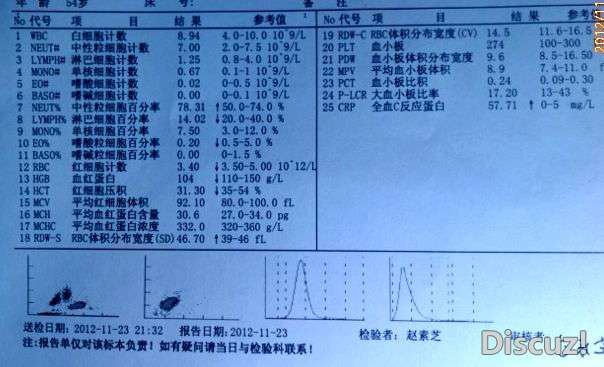 年 龄 54岁 床 号: 备 注
No 代号 项 目 结 果 参考值
1 WBC 白细胞计数 8.94 4.0-10.0 10^9/L
2 NEUT# 中性粒细胞计数 7.00 2.0-7.5 10^9/L
3 LYMPH# 淋巴细胞计数 1.25 0.8-4.0 10^9/L
4 MONO# 单核细胞计数 0.67 0.1-1 10^9/L
5 EO# 嗜酸细胞计数 0.02 0-0.5 10^9/L
6 BASO# 嗜碱细胞计数 0.00 0-0.1 10^9/L
7 NEUT% 中性粒细胞百分率 78.31 ↑50.0-74.0 %
8 LYMPH% 淋巴细胞百分率 14.02 ↓20.0-40.0 %
9 MONO% 单核细胞百分率 7.50 3.0-12.0 %
10 EO% 嗜酸粒细胞百分率 0.20 ↓0.5-5.0 %
11 BASO% 嗜碱粒细胞百分率 0.00 0-1.5 %
12 RBC 红细胞计数 3.40 ↓3.50-5.00 10^12/L
13 HGB 血红蛋白 104 ↓110-150 g/L
14 HCT 红细胞压积 31.30 ↓35-54 %
15 MCV 平均红细胞体积 92.10 80.0-100.0 fL
16 MCH 平均血红蛋白含量 30.6 27.0-34.0 pg
17 MCHC 平均血红蛋白浓度 332.0 320-360 g/L
18 RDW-S RBC体积分布宽度(SD) 46.70 ↑39-46 fL
No 代号 项 目 结 果 参考值
19 RDW-C RBC体积分布宽度(CV) 14.5 11.6-16.5
20 PLT 血小板 274 100-300
21 PDW 血小板体积分布宽度 9.6 8.5-16.50
22 MPV 平均血小板体积 8.9 7.4-11.0
23 PCT 血小板比积 0.24 0.09-0.30
24 P-LCR 大血小板比率 17.20 13-43 %
25 CRP 全血C反应蛋白 57.71 ↑0-5 mg/L
送检日期: 2012-11-23 21:32 报告日期: 2012-11-23 检验者: 赵素芝 审核者
注:报告单仅对该标本负责! 如有疑问请当日与检验科联系!
Discuz!
2012/11